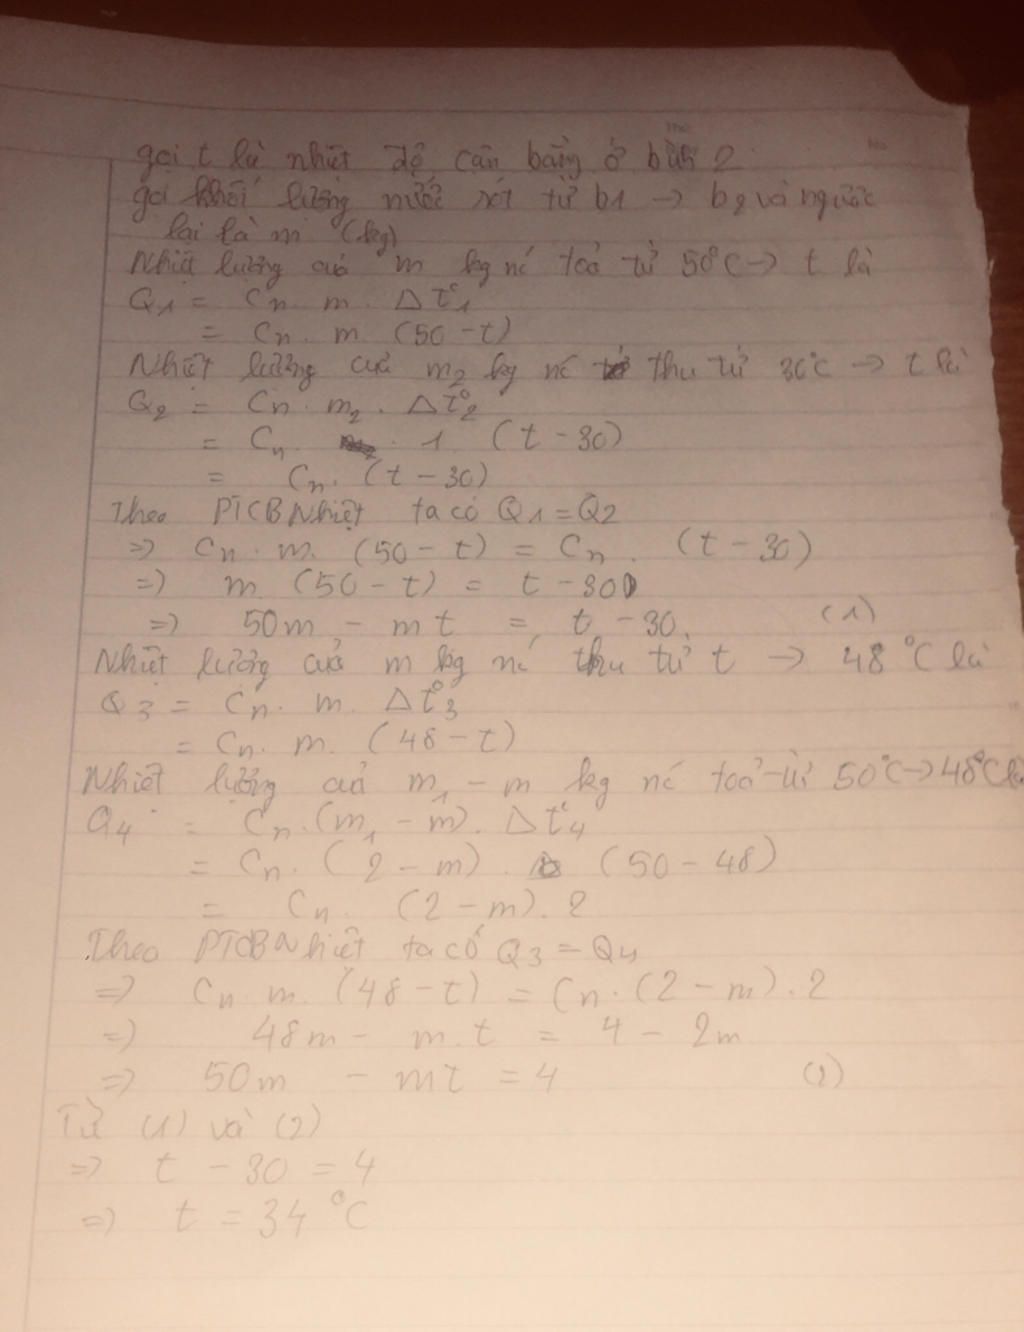 gọi t là nhiệt độ cân bằng ở bình 2
gọi khối lượng nước rót từ b1 → b2 và ngược
lại là m (kg)
Nhiệt lượng của m kg nc toả từ 50°C → t là
Q1 = Cn . m . Δt°1
= Cn . m (50 - t)
Nhiệt lượng của m2 kg nc thu từ 30°C → t là
Q2 = Cn . m2 . Δt°2
= Cn . 1 (t - 30)
= Cn . (t - 30)
Theo PTCB Nhiệt ta có Q1 = Q2
=> Cn . m . (50 - t) = Cn . (t - 30)
=> m (50 - t) = t - 30
=> 50m - mt = t - 30 (1)
Nhiệt lượng của m kg nc thu từ t → 48°C là
Q3 = Cn . m . Δt°3
= Cn . m . (48 - t)
Nhiệt lượng của m1 - m kg nc toả từ 50°C → 48°C là
Q4 = Cn . (m1 - m) . Δt°4
= Cn . (2 - m) . (50 - 48)
= Cn . (2 - m) . 2
Theo PTCB Nhiệt ta có Q3 = Q4
=> Cn m . (48 - t) = Cn . (2 - m) . 2
=> 48m - m.t = 4 - 2m
=> 50m - mt = 4 (2)
Từ (1) và (2)
=> t - 30 = 4
=> t = 34°C